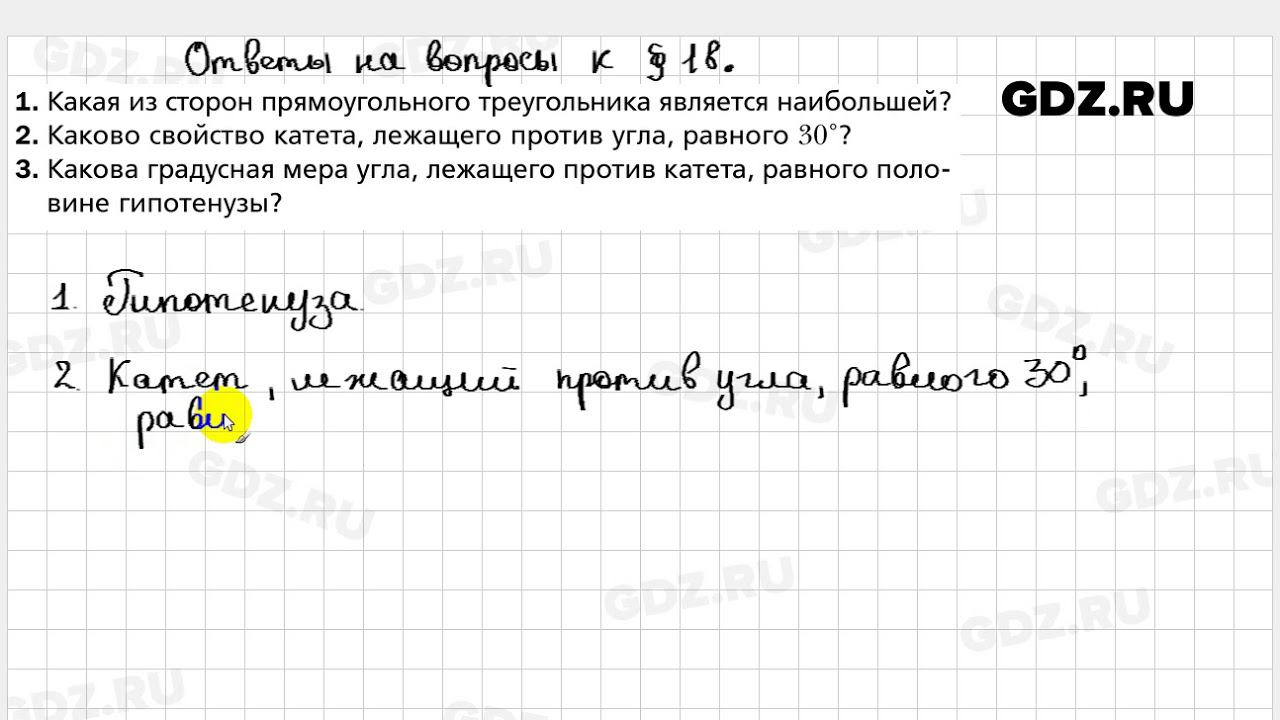 Ответы на вопросы к § 18.
GDZ.RU
1. Какая из сторон прямоугольного треугольника является наибольшей?
2. Каково свойство катета, лежащего против угла, равного 30°?
3. Какова градусная мера угла, лежащего против катета, равного поло-
вине гипотенузы?
1. Гипотенуза
2. Катет, лежащий против угла, равного 30°,
рав
GDZ.RU
GDZ.RU
GDZ.RU
GDZ.RU
GDZ.RU
GDZ.RU
GDZ.RU
GDZ.RU
GDZ.RU
GDZ.RU